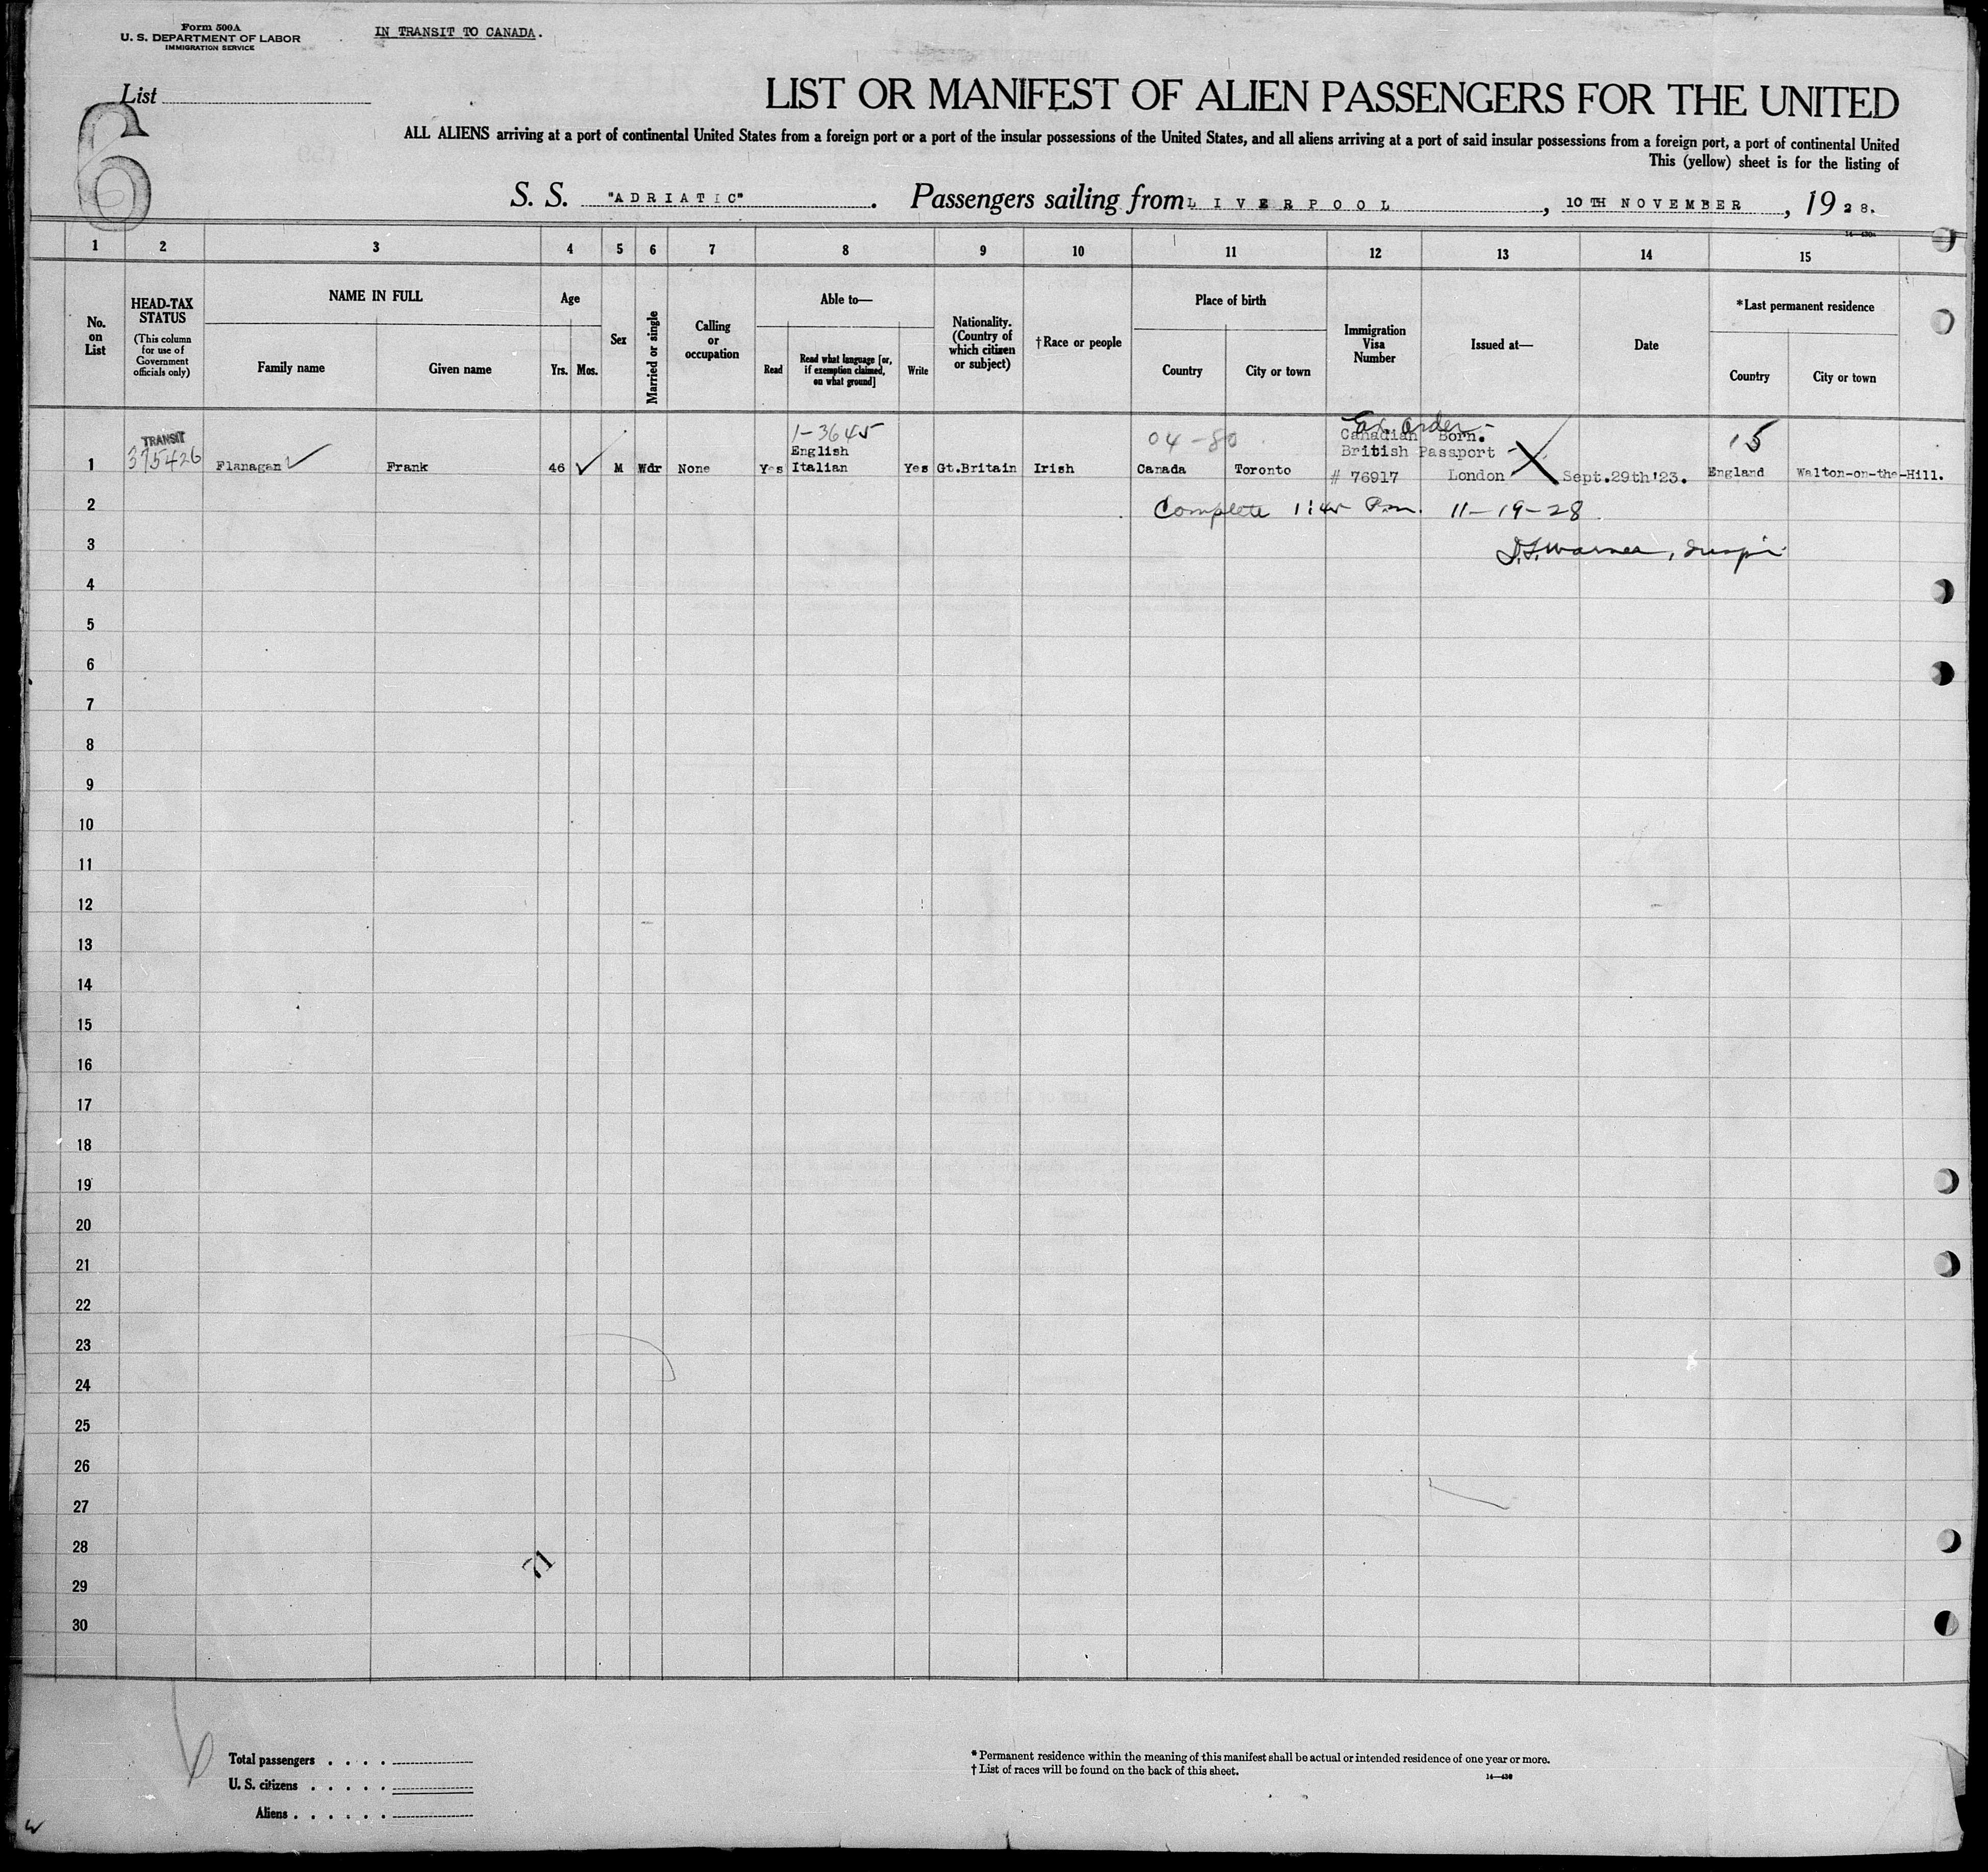 Form 500A
U. S. DEPARTMENT OF LABOR
IMMIGRATION SERVICE
IN TRANSIT TO CANADA.
List
6
LIST OR MANIFEST OF ALIEN PASSENGERS FOR THE UNITED
ALL ALIENS arriving at a port of continental United States from a foreign port or a port of the insular possessions of the United States, and all aliens arriving at a port of said insular possessions from a foreign port, a port of continental United
This (yellow) sheet is for the listing of
S. S. "ADRIATIC". Passengers sailing from LIVERPOOL, 10TH NOVEMBER, 1928.
1 2 3 4 5 6 7 8 9 10 11 12 13 14 15
No. on List
HEAD-TAX STATUS
(This column for use of Government officials only)
NAME IN FULL
Family name
Given name
Age
Yrs. Mos.
Sex
Married or single
Calling or occupation
Able to—
Read
Read what language [or, if exemption claimed, on what ground]
Write
Nationality. (Country of which citizen or subject)
†Race or people
Place of birth
Country
City or town
Immigration Visa Number
Issued at—
Date
*Last permanent residence
Country
City or town
TRANSIT
1-3645
04-80
Ex. Order-
15
English
Canadian Born.
British Passport
1 375426 Flanagan Frank 46 M Wdr None Yes Italian Yes Gt.Britain Irish Canada Toronto # 76917 London Sept.29th'23. England Walton-on-the-Hill.
2 Complete 1:45 P.m. 11-19-28
3 Warner, Insp'r
4
5
6
7
8
9
10
11
12
13
14
15
16
17
18
19
20
21
22
23
24
25
26
27
28
71
29
30
Total passengers . . . .
U. S. citizens . . . . .
Aliens . . . . . .
* Permanent residence within the meaning of this manifest shall be actual or intended residence of one year or more.
† List of races will be found on the back of this sheet.